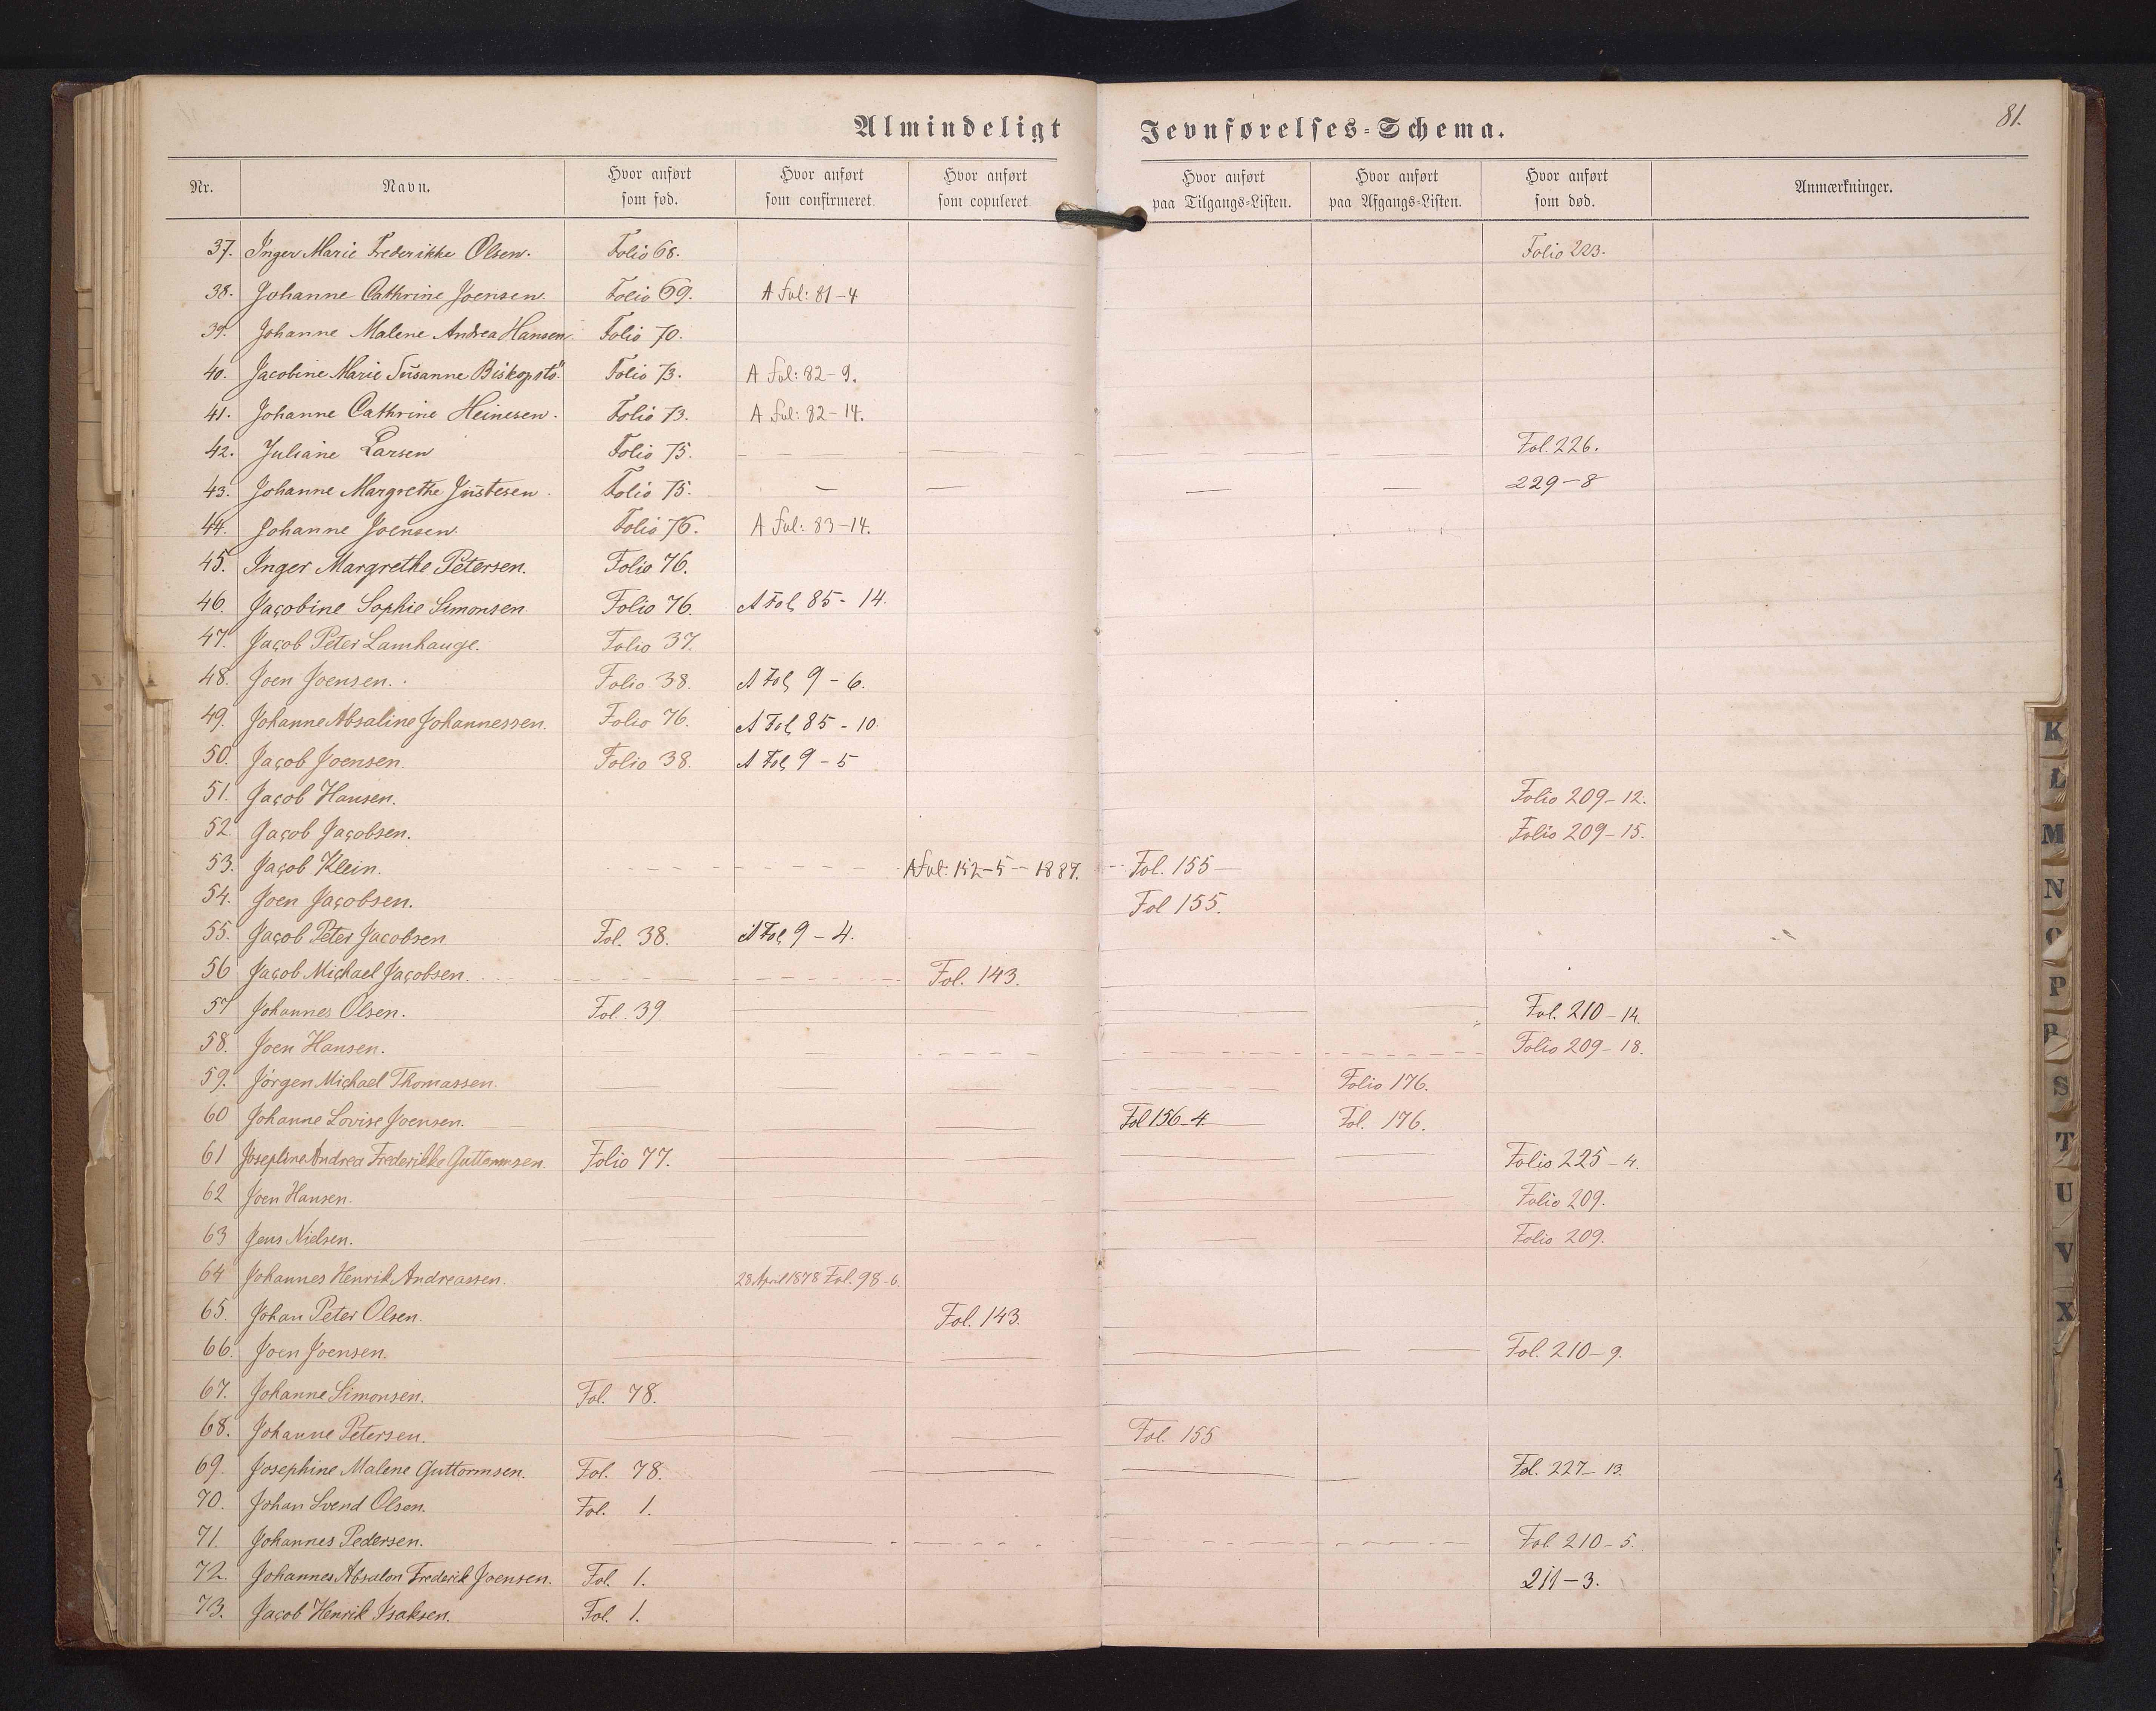 81.
Almindeligt Jevnførelses-Schema.
Nr. Navn. Hvor anført som fød. Hvor anført som confirmeret. Hvor anført som copuleret Hvor anført paa Tilgangs-Listen. Hvor anført paa Afgangs-Listen. Hvor anført som død. Anmærkninger.
37. Inger Marie Frederikke Olsen. Folio 68. Folio 223.
38. Johanne Cathrine Joensen. Folio 69. A Fol: 81-4
39. Johanne Malene Andrea Hansen. Folio 70.
40. Jacobine Marie Susanne Biskopstö. Folio 73. A Fol: 82-9.
41. Johanne Cathrine Heinesen. Folio 73. A Fol: 82-14.
42. Juliane Larsen Folio 75. Fol. 226.
43. Johanne Margrethe Justesen. Folio 75. — — — — 229-8
44. Johanne Joensen. Folio 76. A Fol: 83-14.
45. Inger Margrethe Petersen. Folio 76.
46. Jacobine Sophie Simonsen. Folio 76. A Fol 85-14.
47. Jacob Peter Lamhauge. Folio 37.
48. Joen Joensen. Folio 38. A Fol 9-6.
49. Johanne Absaline Johannessen. Folio 76. A Fol 85-10.
50. Jacob Joensen. Folio 38. A Fol 9-5
51. Jacob Hansen. Folio 209-12.
52. Jacob Jacobsen. Folio 209-15.
53. Jacob Klein. A Fol: 152-5-1887. Fol. 155
54. Joen Jacobsen. Fol 155.
55. Jacob Peter Jacobsen Fol. 38. A Fol 9-4.
56 Jacob Michael Jacobsen. Fol. 143.
57 Johannes Olsen. Fol. 39 Fol. 210-14.
58. Joen Hansen. Folio 209-18.
59. Jörgen Michael Thomassen. Folio 176.
60 Johanne Lovise Joensen. Fol 156-4. Fol. 176.
61 Josephine Andrea Frederikke Guttormsen. Folio 77. Folio 225-4.
62 Joen Hansen. Folio 209.
63 Jens Nielsen. Folio 209.
64 Johannes Henrik Andreassen. 28 April 1878 Fol. 98-6.
65. Johan Peter Olsen. Fol. 143.
66. Joen Joensen. Fol. 210-9.
67. Johanne Simonsen. Fol. 78.
68. Johanne Petersen. Fol. 155
69. Josephine Malene Guttormsen. Fol. 78. Fol. 227-13.
70. Johan Svend Olsen. Fol. 1.
71. Johannes Pedersen. Fol. 210-5.
72. Johannes Absalon Frederik Joensen. Fol. 1. 211-3.
73. Jacob Henrik Isaksen. Fol. 1.
K
L
M
N
O
P
R
S
T
U
V
X